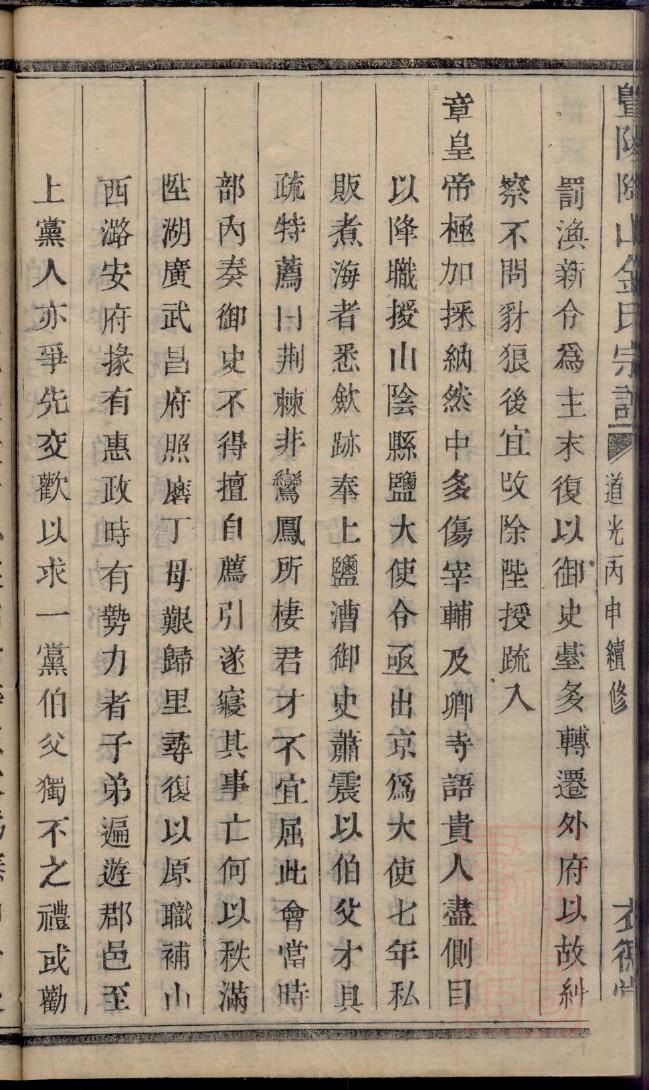 暨陽 山金氏宗譜 道光丙申續修
罰渙新令爲主末復以御史臺多轉遷外府以故糾
察不問豺狼後宜改除陛授疏入
章皇帝極加採納然中多傷宰輔及卿寺語貴人盡側目
以降職授山陰縣鹽大使令亟出京爲大使七年私
販煮海者悉歛跡奉上鹽漕御史蕭震以伯父才具
疏特薦曰荆棘非鸞鳳所棲君才不宜屈此會當時
部內奏御史不得擅自薦引遂寢其事亡何以秩滿
陞湖廣武昌府照磨丁母艱歸里尋復以原職補山
西潞安府掾有惠政時有勢力者子弟遍遊郡邑至
上黨人亦爭先交歡以求一黨伯父獨不之禮或勸